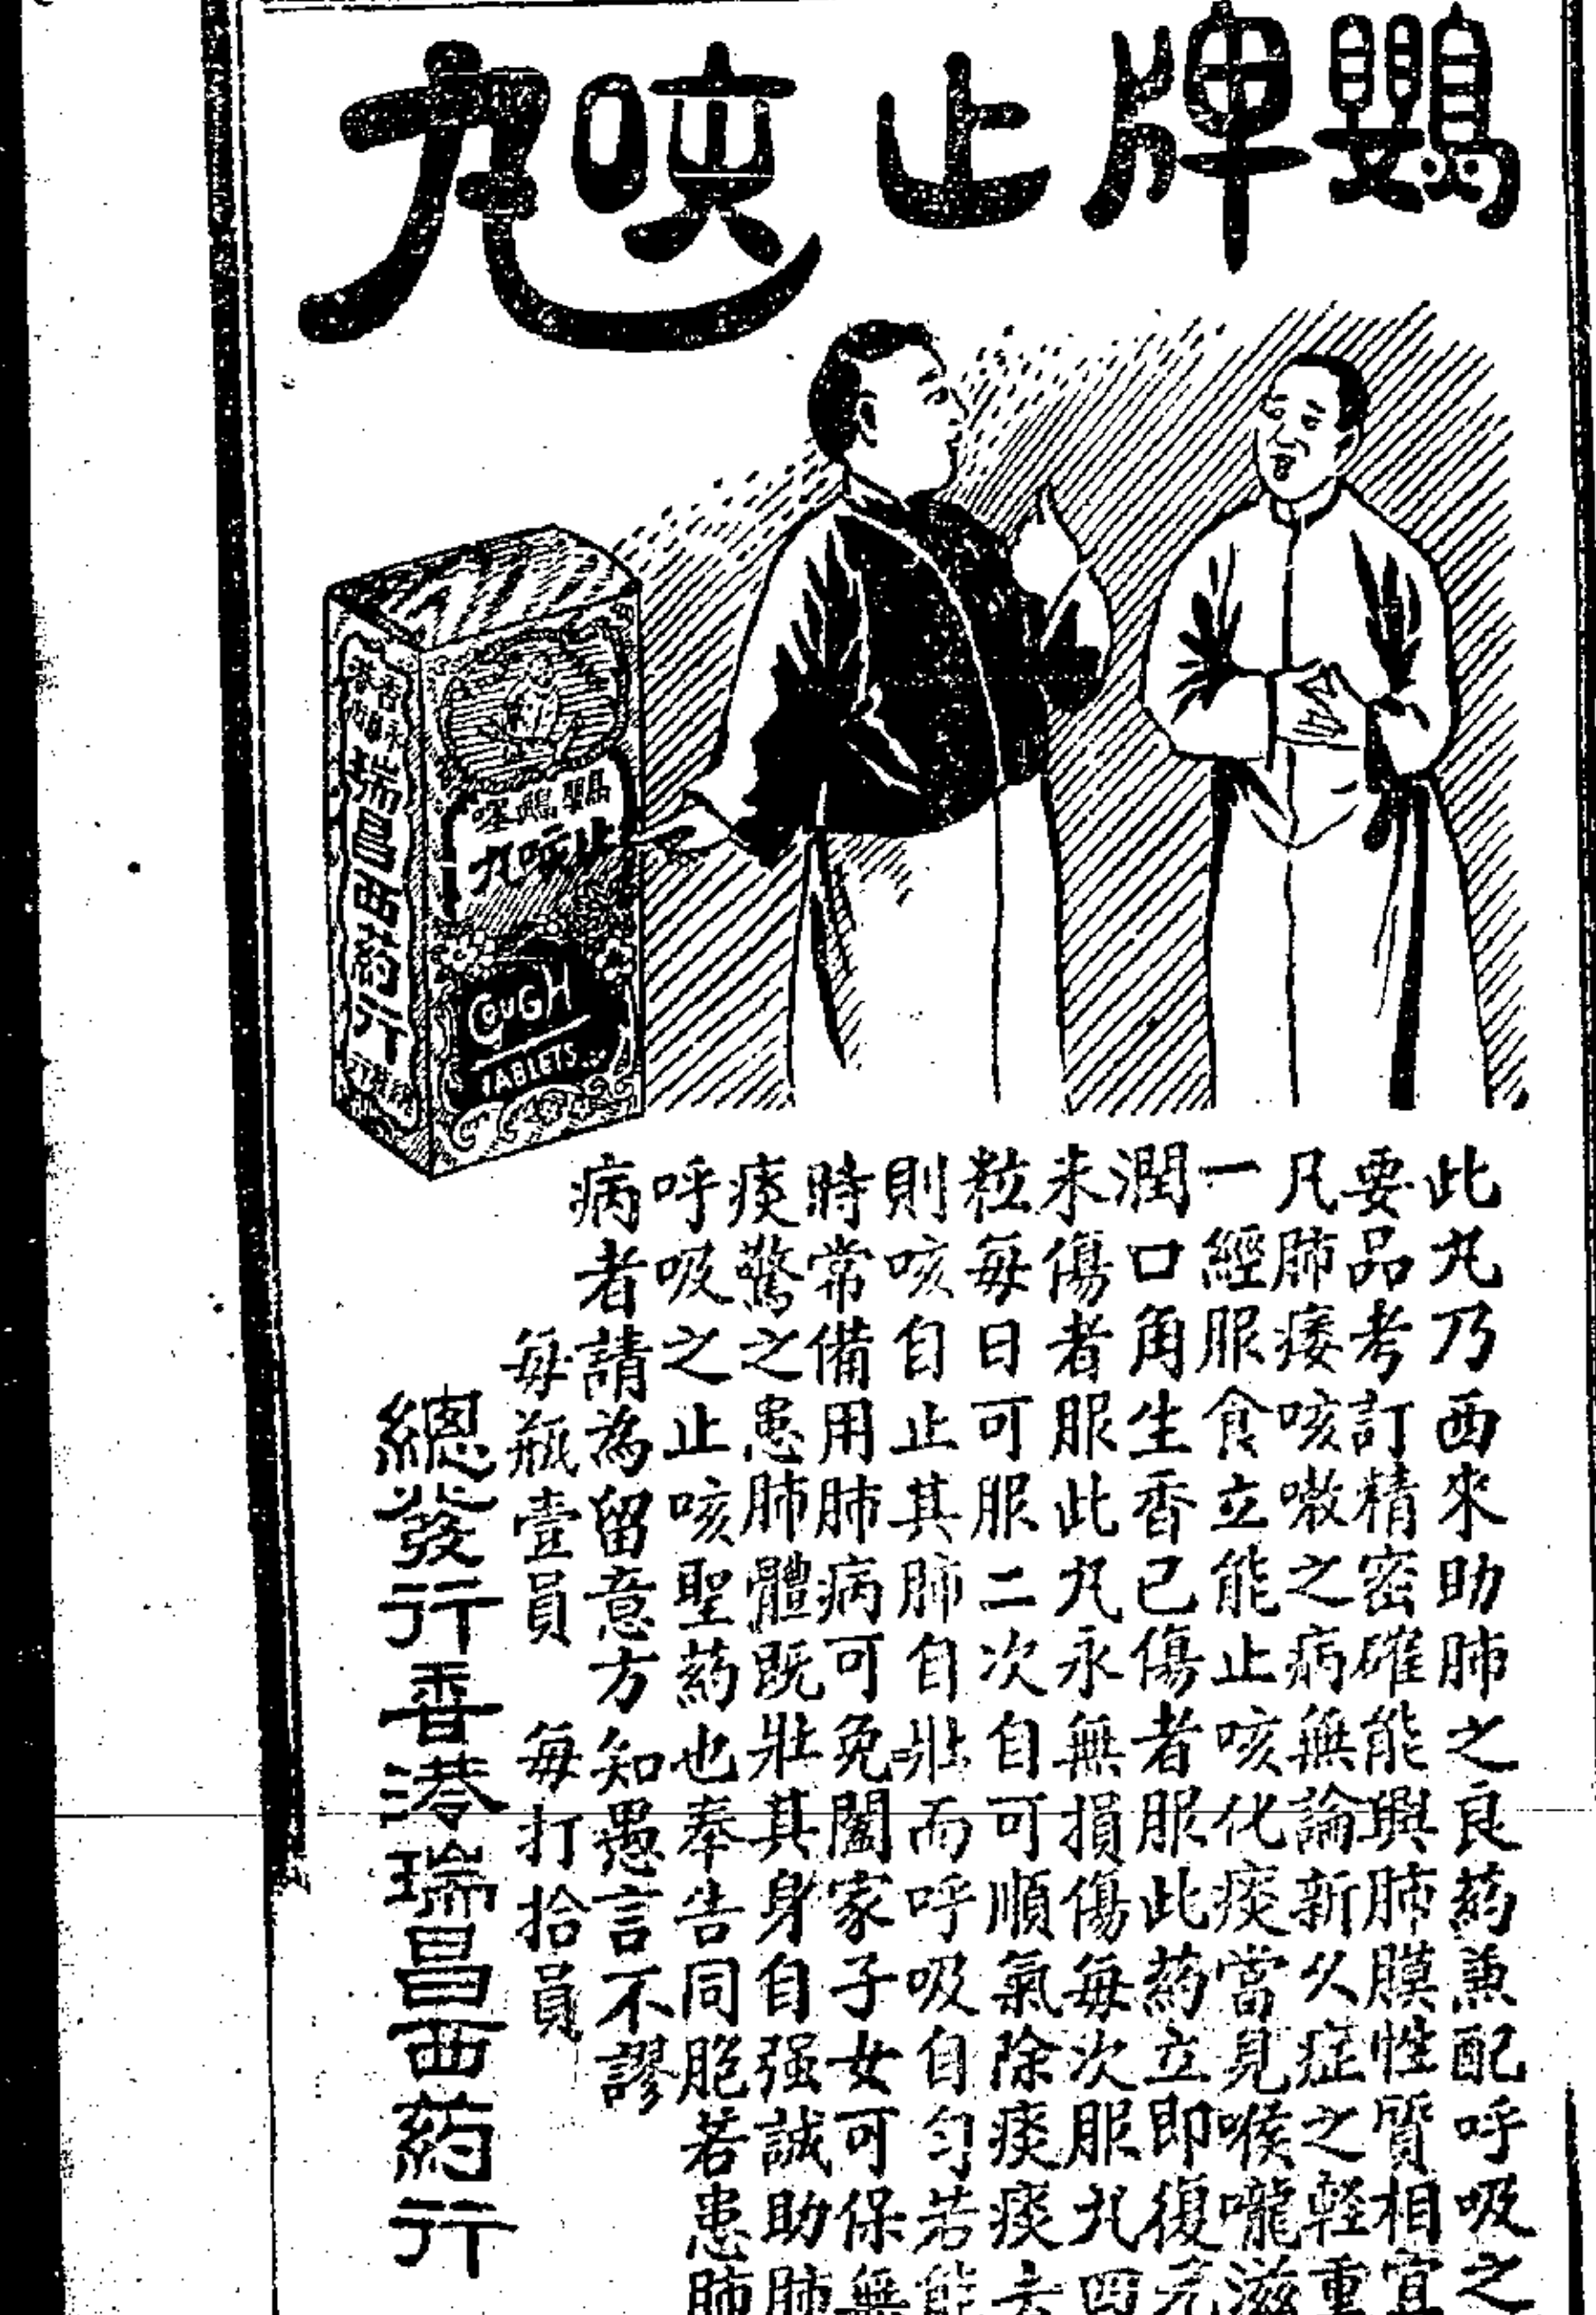 鸚牌止咳丸
鸚鵡嘜
止咳丸
COUGH
TABLETS
瑞昌西葯行
此丸乃西來助肺之良葯兼配呼吸之
要品考訂精密確能與肺膜性質相宜
凡肺痿咳嗽之病無論新久症之軽重
一經服食立能止咳化痰當見喉嚨滋
潤口角生香已傷者服此葯立即復元
未傷者服此丸永無損傷每次服丸四
粒每日可服二次自可順氣除痰痰去
則咳自止其肺自壯而呼吸自勻若能
時常備用肺病可免闔家子女可保無
痰驚之患肺體既壯其身自强誠助肺
呼吸之止咳聖葯也奉告同胞若患肺
病者請為留意方知愚言不謬
每瓶壹員 每打拾員
總發行香港瑞昌西葯行